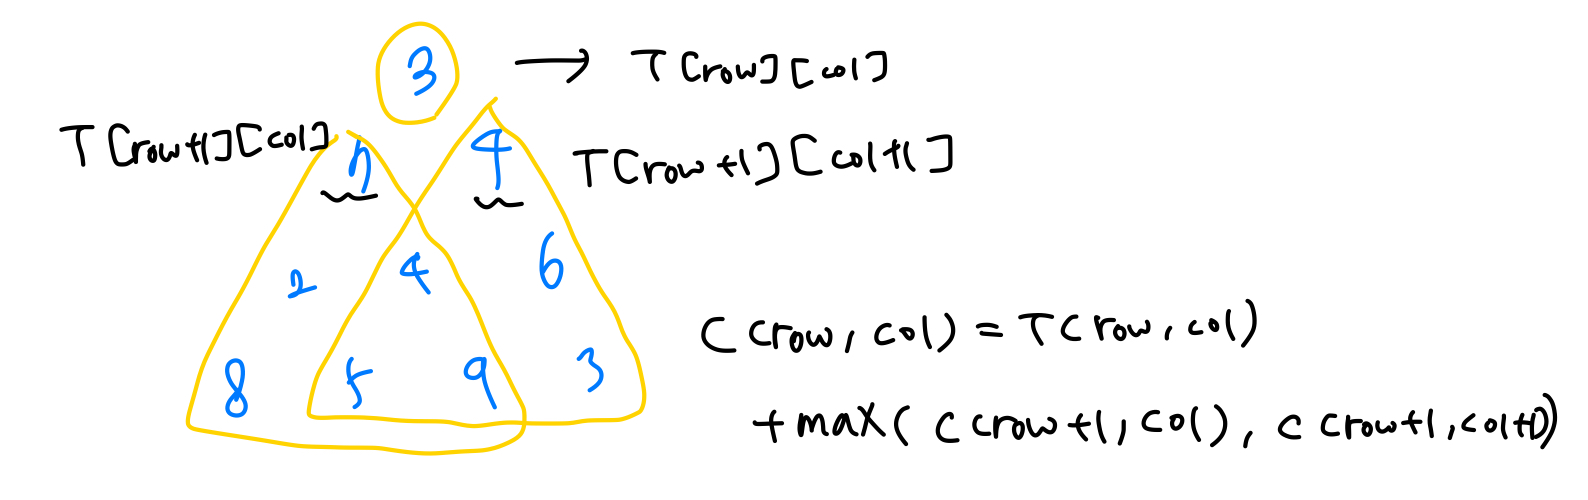 3 → T[row][col]
T[row+1][col] 7 4 T[row+1][col+1]
2 4 6
8 5 9 3
C(row, col) = T(row, col)
+ max( C(row+1, col), C(row+1, col+1))